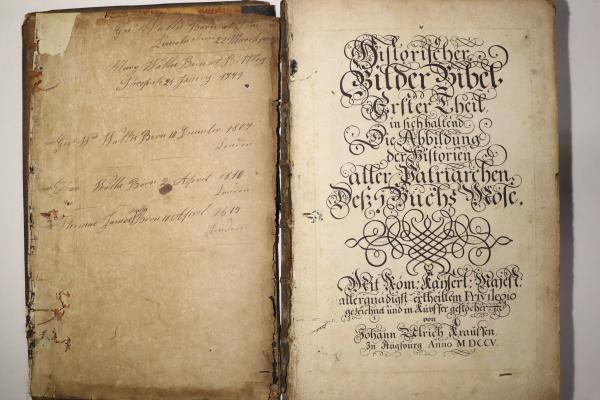 Mary Wallis Born at
24 January 1779
Wallis Born 11 December 1807
London
Wallis Born April 1810
London
Thomas James Born 11 April 1813
London
Historischer
Bilder Bibel.
Erster Theil.
in sich haltend
Die Abbildung
der Historien
aller Patriarchen.
Deß 1. Buchs Mose.
Mit Röm: Kaÿserl: Maÿest:
allergnädigst ertheiltem Privilegio
gezeichnet und in Kupffer gestochen
von
Johann Ulrich Kraussen.
in Augspurg Anno MDCCV.